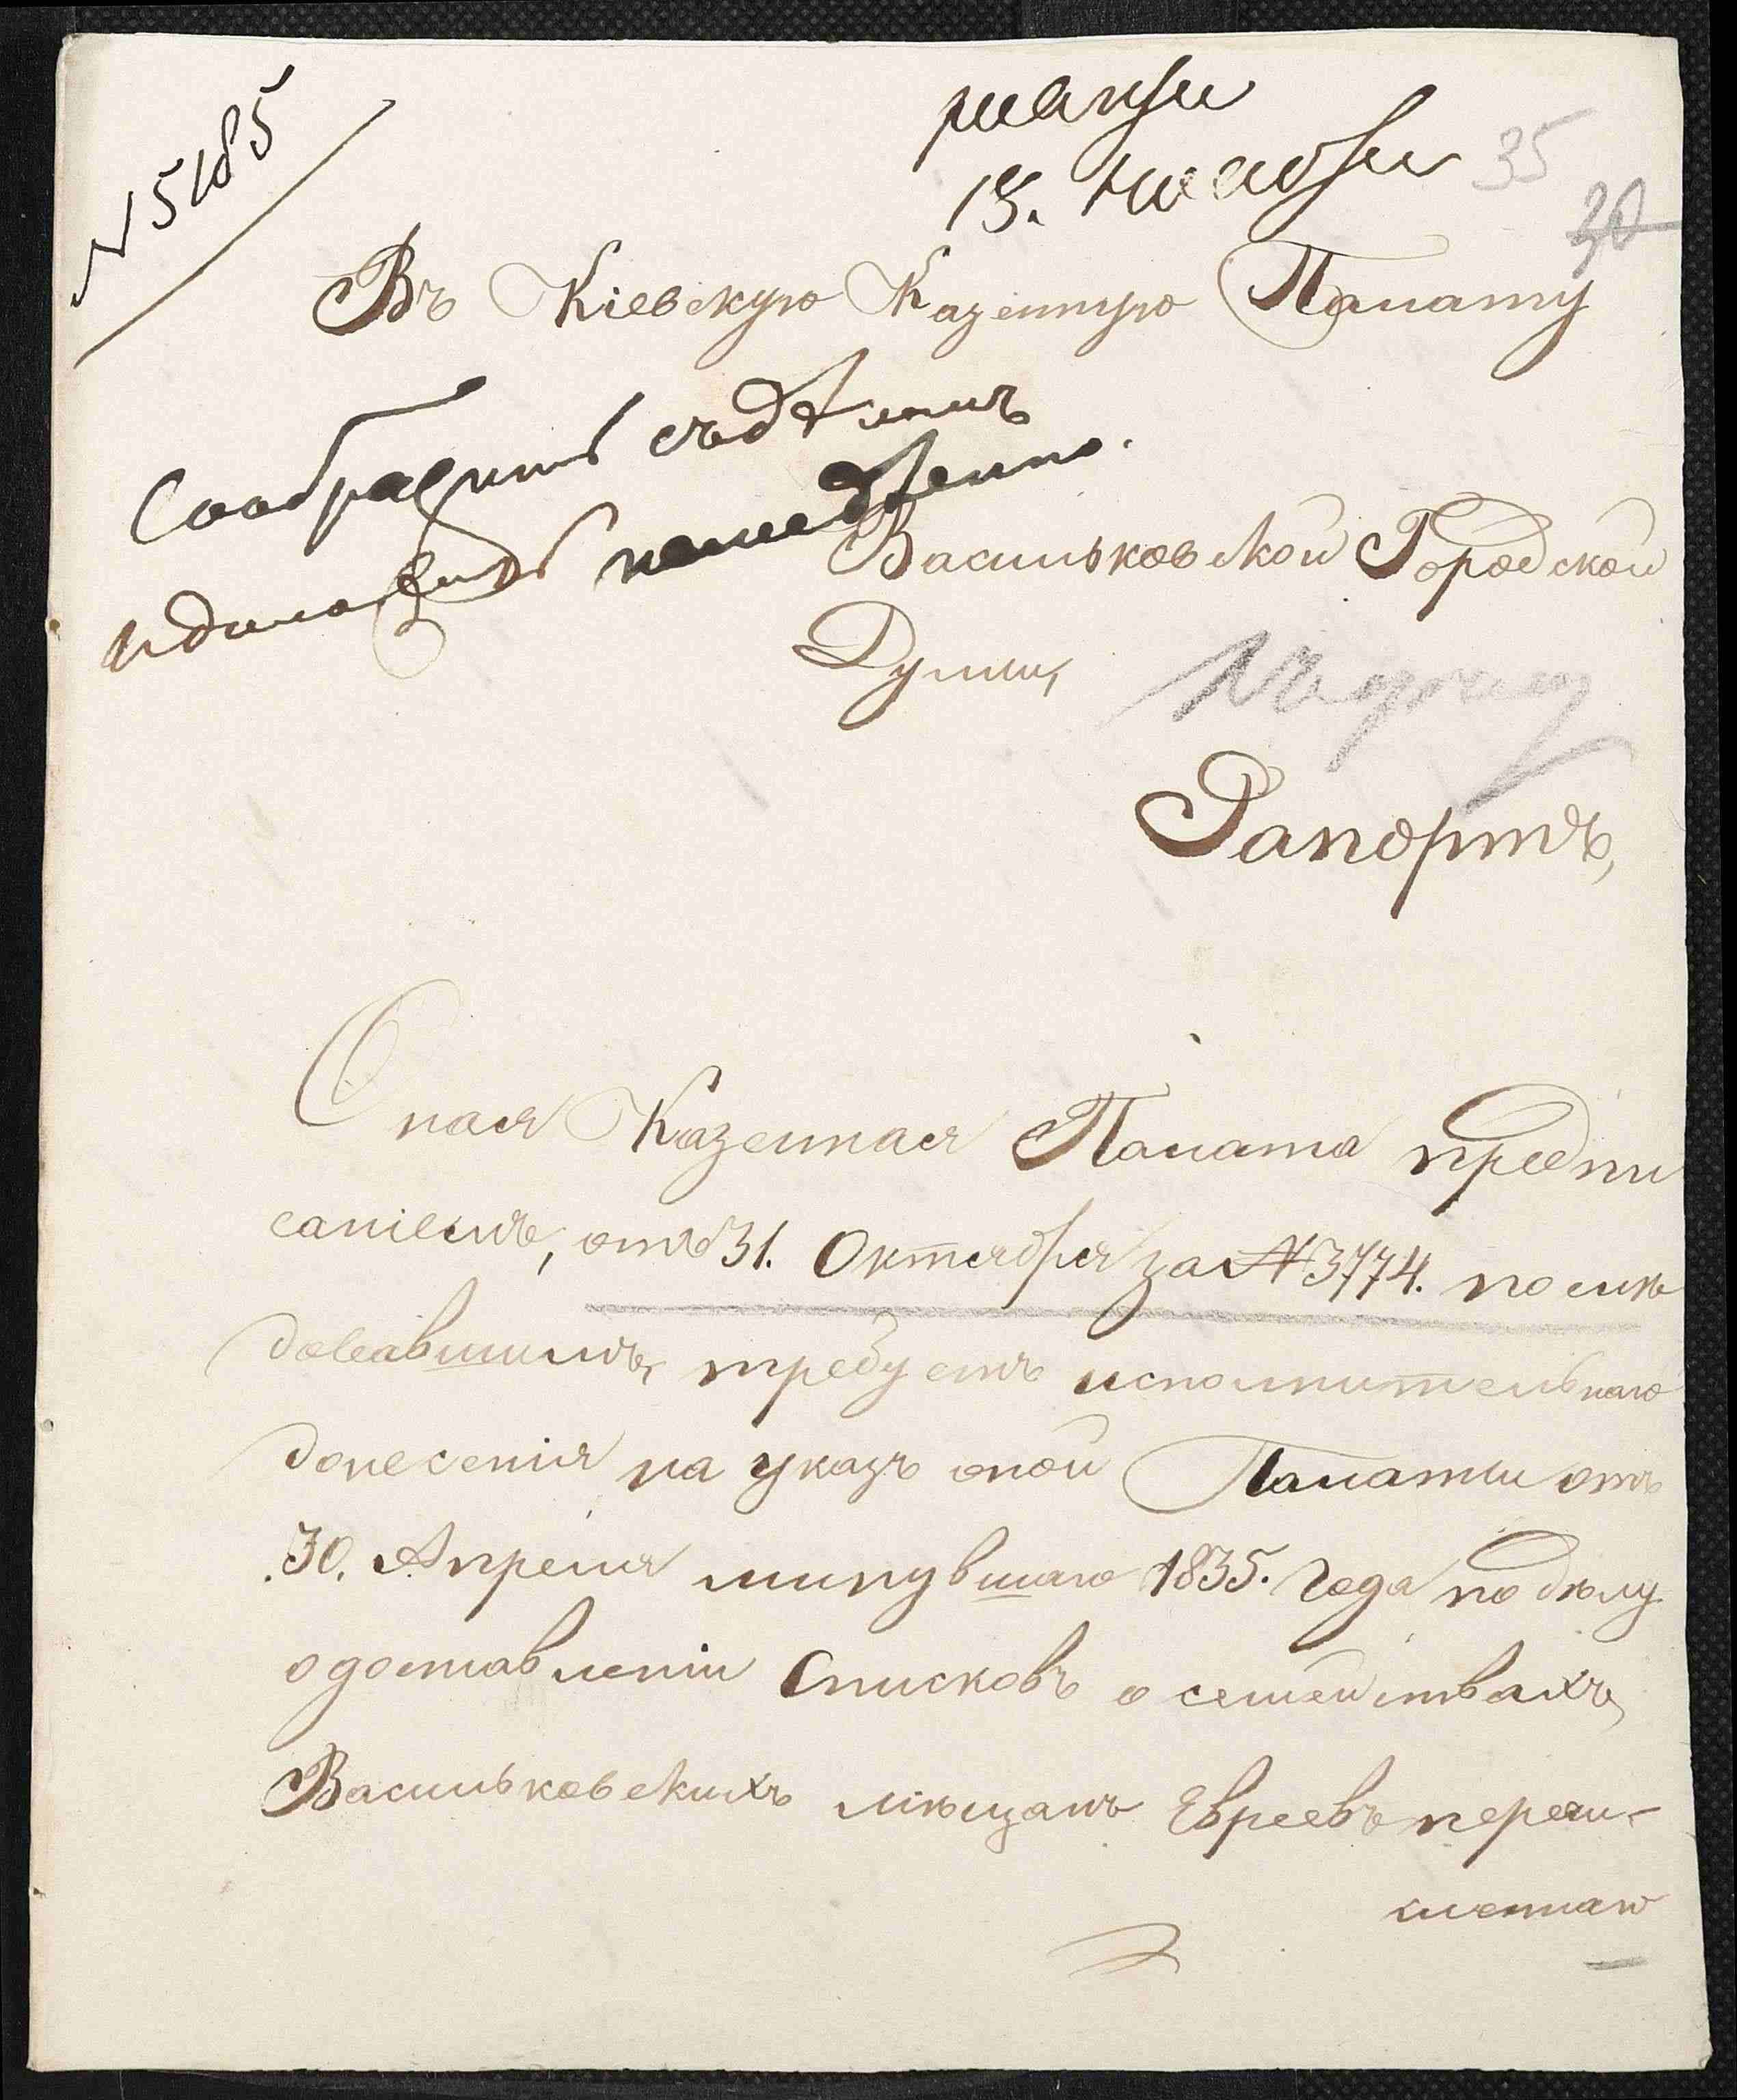 N 5185
15. Ноября
35
30
Въ Кіевскую Казенную Палату
Сообразить съ дѣломъ
и доложить немедленно.
Васильковской Городской
Думы,
Рапортъ,
Оная Казенная Палата предпи
саніемъ, отъ 31. Октября за № 3774. послѣ
довавшимъ, требуетъ исполнительнаго
донесенія на указъ оной Палаты отъ
30. Апреля минувшаго 1835. года по дѣлу
о доставленіи Списковъ о семействахъ
Васильковскихъ мѣщанъ Евреевъ перечи-
сленнаго